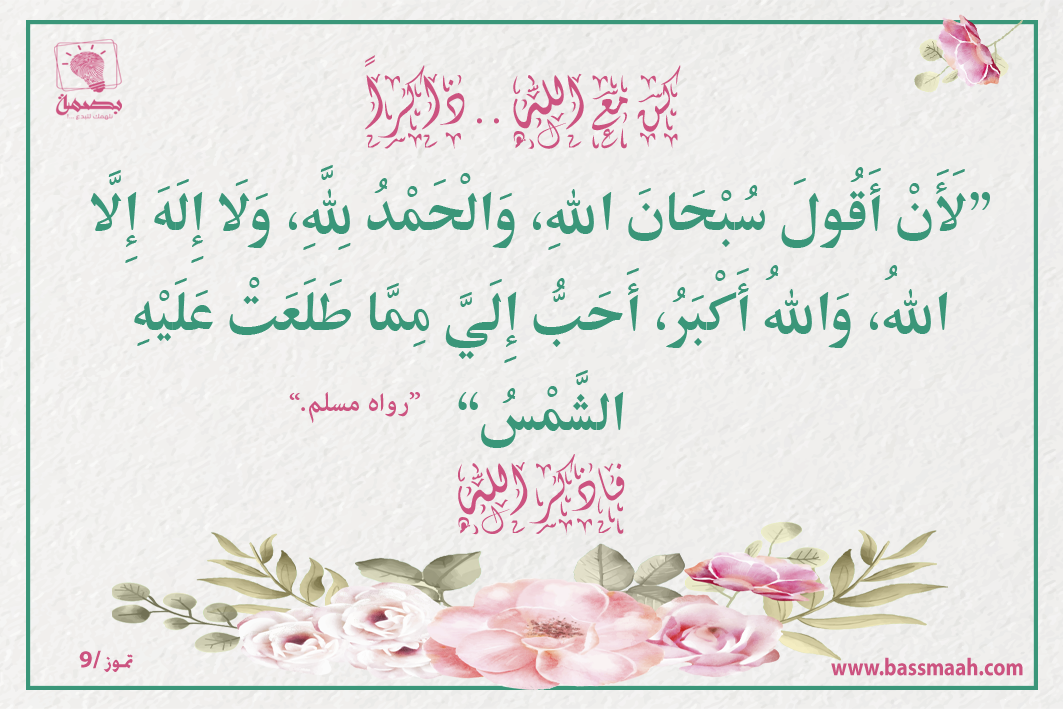 بصمة
نلهمك لتبدع ...!
كن مع الله .. ذاكراً
”لَأَنْ أَقُولَ سُبْحَانَ اللهِ، وَالْحَمْدُ لِلَّهِ، وَلَا إِلَهَ إِلَّا
اللهُ، وَاللهُ أَكْبَرُ، أَحَبُّ إِلَيَّ مِمَّا طَلَعَتْ عَلَيْهِ
الشَّمْسُ“ ”رواه مسلم.“
فاذكر الله
تموز /9
www.bassmaah.com